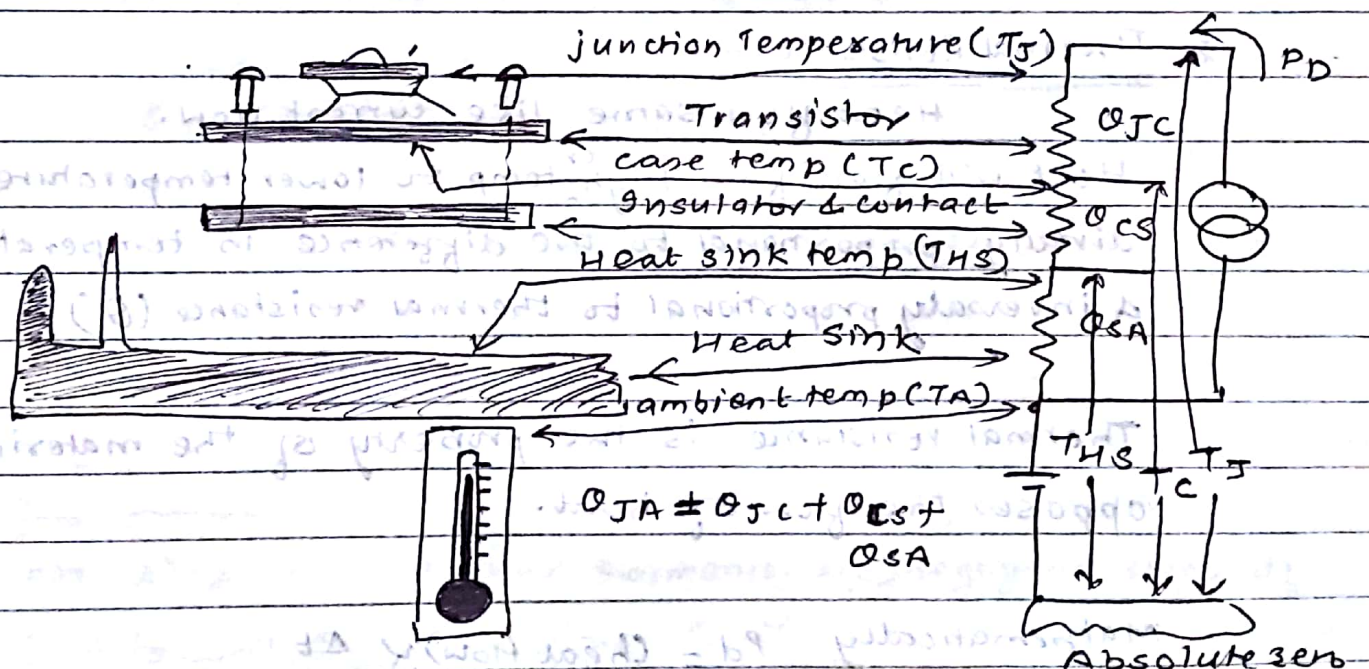 junction Temperature (TJ)
PD
Transistor
θJC
case temp (TC)
Insulator & contact
θCS
Heat sink temp (THS)
θSA
Heat Sink
ambient temp (TA)
THS
TC
TJ
θJA = θJC + θCS +
θSA
Absolute zero